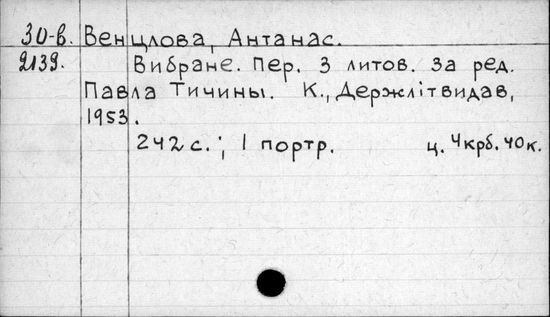 30-в. Венцлова, Антанас.
2139. Вибране. Пер. З литов. За ред.
Павла Тичины. К., Держлітвидав,
1953.
242 с.; 1 портр. ц. 4крб. 40к.